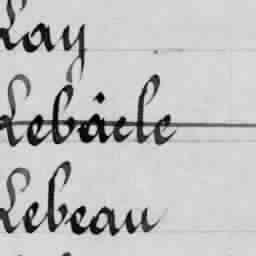 Lay
Lebâcle
Lebeau